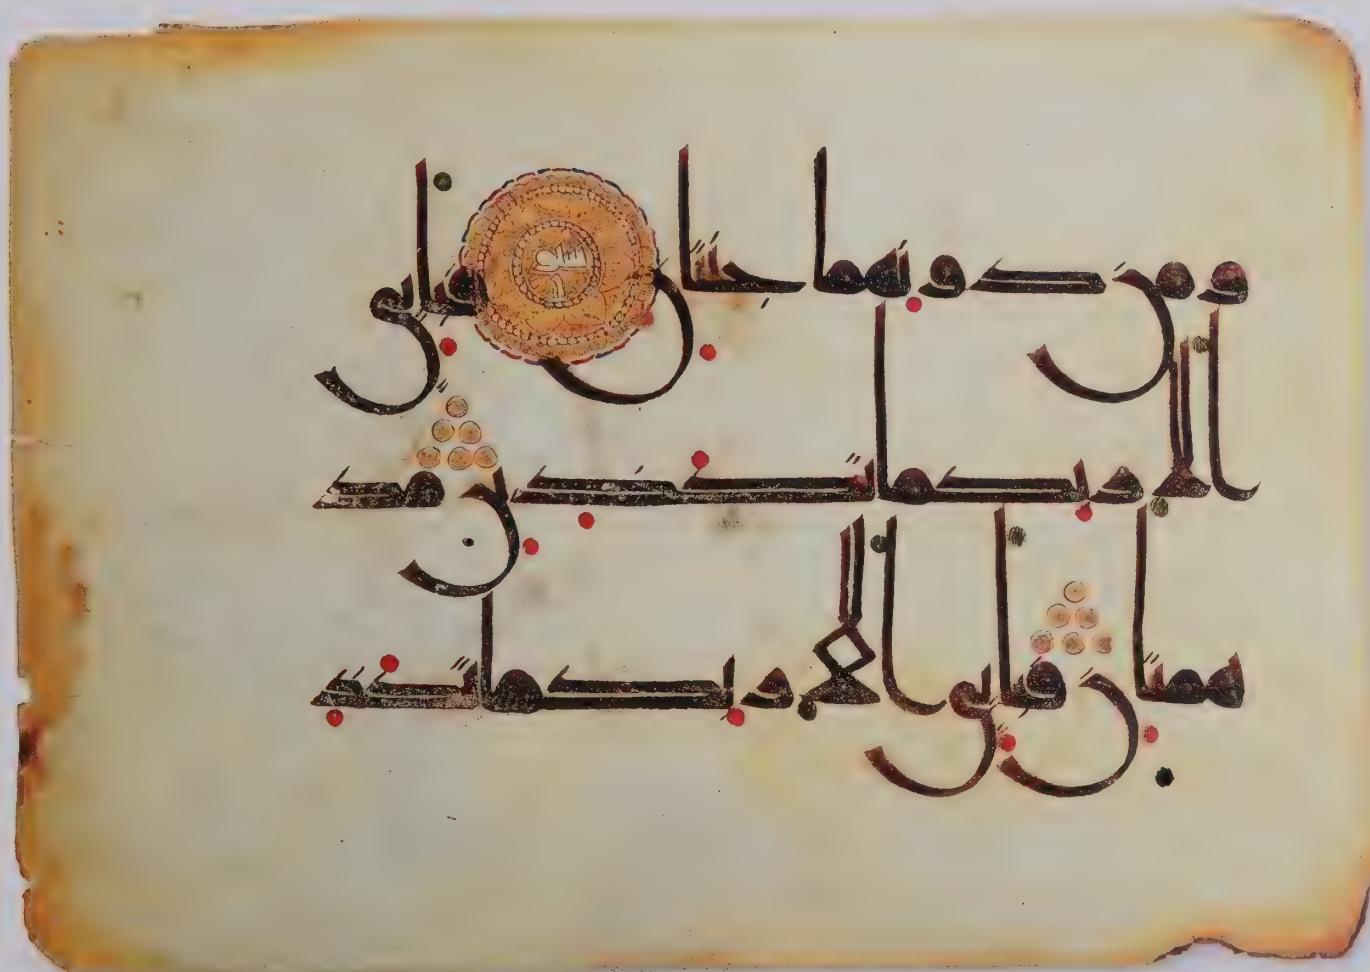 ومن دونهما جنتان فباى
الا ربكما تكذبن مد
همتان فباى الا ربكما تكذ